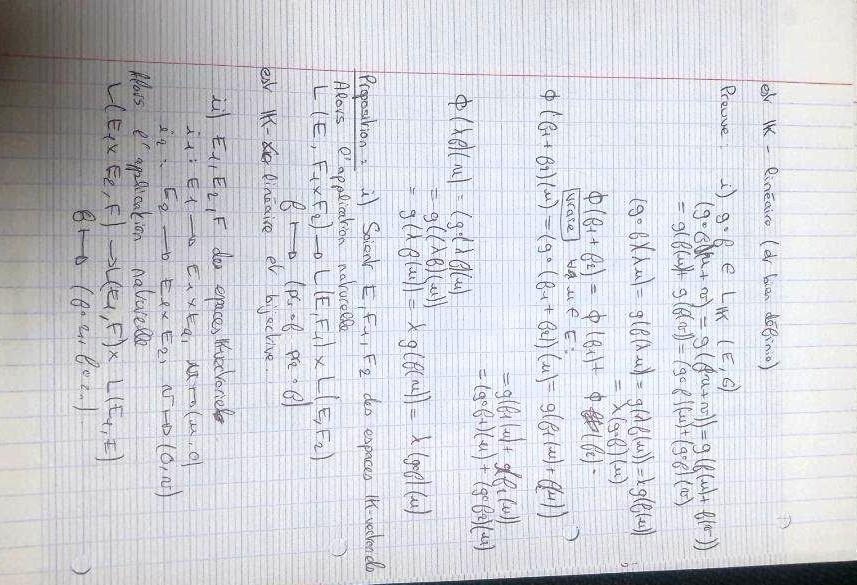 est IK - linéaire (et bien définie)
Preuve: i) g∘f ∈ L_IK (E, G)
(g∘f)(u + v) = g(f(u+v)) = g(f(u) + f(v))
= g(f(u)) + g(f(v)) = (g∘f)(u) + (g∘f)(v)
(g∘f)(λu) = g(f(λu)) = g(λf(u)) = λg(f(u))
= λ(g∘f)(u)
Φ(f1 + f2) = Φ(f1) + Φ(f2).
∀u ∈ E:
Φ(f1 + f2)(u) = (g∘(f1 + f2))(u) = g(f1(u) + f2(u))
= g(f1(u) + g(f2(u))
= (g∘f1)(u) + (g∘f2)(u)
Φ(λf)(u) = (g∘(λf)(u)
= g((λf)(u))
= g(λf(u)) = λ g(f(u)) = λ(g∘f)(u)
Proposition: i) Soient E, F1, F2 des espaces IK-vectoriels
Alors l'application naturelle
L(E, F1×F2) → L(E, F1) × L(E, F2)
f ↦ (pr1∘f, pr2∘f)
est IK- linéaire et bijective.
ii) E1, E2, F des epaces IKvectoriels
i1: E1 → E1×E2, u ↦ (u, 0)
i2: E2 → E1×E2, v ↦ (0, v)
Alors l'application naturelle
L(E1×E2, F) → L(E1, F) × L(E1, E)
f ↦ (f∘i1, f∘i2).